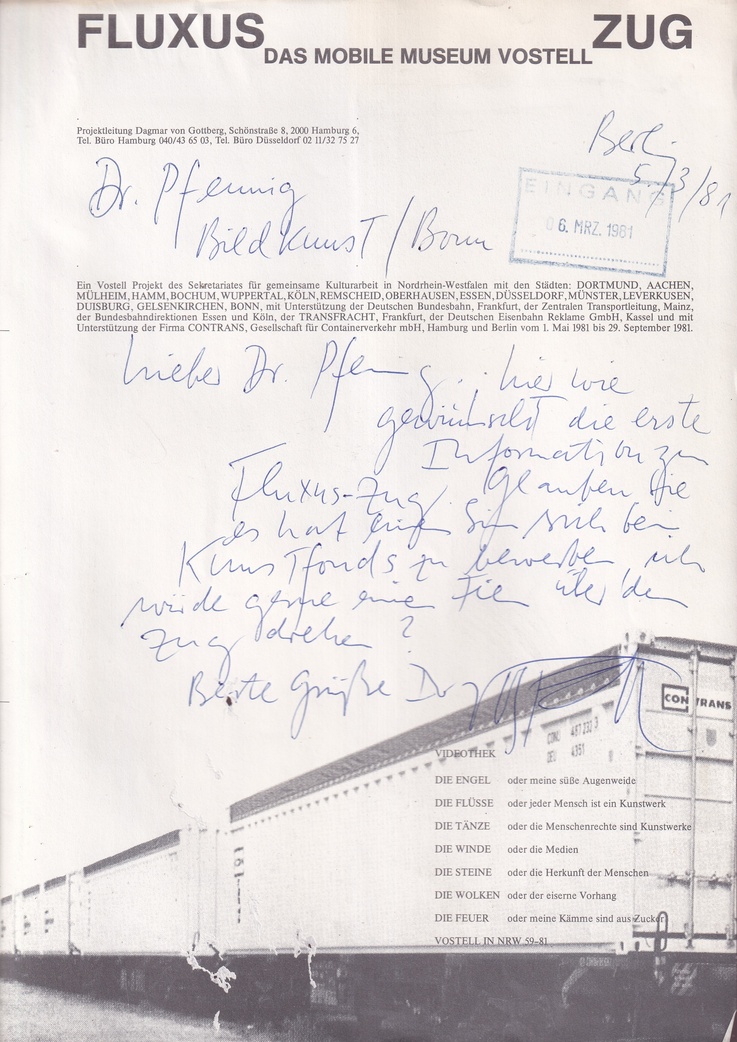 FLUXUS ZUG
DAS MOBILE MUSEUM VOSTELL
Projektleitung Dagmar von Gottberg, Schönstraße 8, 2000 Hamburg 6,
Tel. Büro Hamburg 040/43 65 03, Tel. Büro Düsseldorf 02 11/32 75 27
Berlin
5/3/81
Dr. Pfennig
Bildkunst / Bonn
EINGANG
06. MRZ. 1981
Ein Vostell Projekt des Sekretariates für gemeinsame Kulturarbeit in Nordrhein-Westfalen mit den Städten: DORTMUND, AACHEN,
MÜLHEIM, HAMM, BOCHUM, WUPPERTAL, KÖLN, REMSCHEID, OBERHAUSEN, ESSEN, DÜSSELDORF, MÜNSTER, LEVERKUSEN,
DUISBURG, GELSENKIRCHEN, BONN, mit Unterstützung der Deutschen Bundesbahn, Frankfurt, der Zentralen Transportleitung, Mainz,
der Bundesbahndirektionen Essen und Köln, der TRANSFRACHT, Frankfurt, der Deutschen Eisenbahn Reklame GmbH, Kassel und mit
Unterstützung der Firma CONTRANS, Gesellschaft für Containerverkehr mbH, Hamburg und Berlin vom 1. Mai 1981 bis 29. September 1981.
Lieber Dr. Pfennig, hier wie
gewünscht die erste
Information zum
Fluxus-Zug. Glauben Sie
es hat einen Sinn sich beim
Kunstfonds zu bewerben, ich
würde gerne einen Film über den
Zug drehen?
Beste Grüße
CONTRANS
VIDEOTHEK
DIE ENGEL oder meine süße Augenweide
DIE FLÜSSE oder jeder Mensch ist ein Kunstwerk
DIE TÄNZE oder die Menschenrechte sind Kunstwerke
DIE WINDE oder die Medien
DIE STEINE oder die Herkunft der Menschen
DIE WOLKEN oder der eiserne Vorhang
DIE FEUER oder meine Kämme sind aus Zucker
VOSTELL IN NRW 59-81